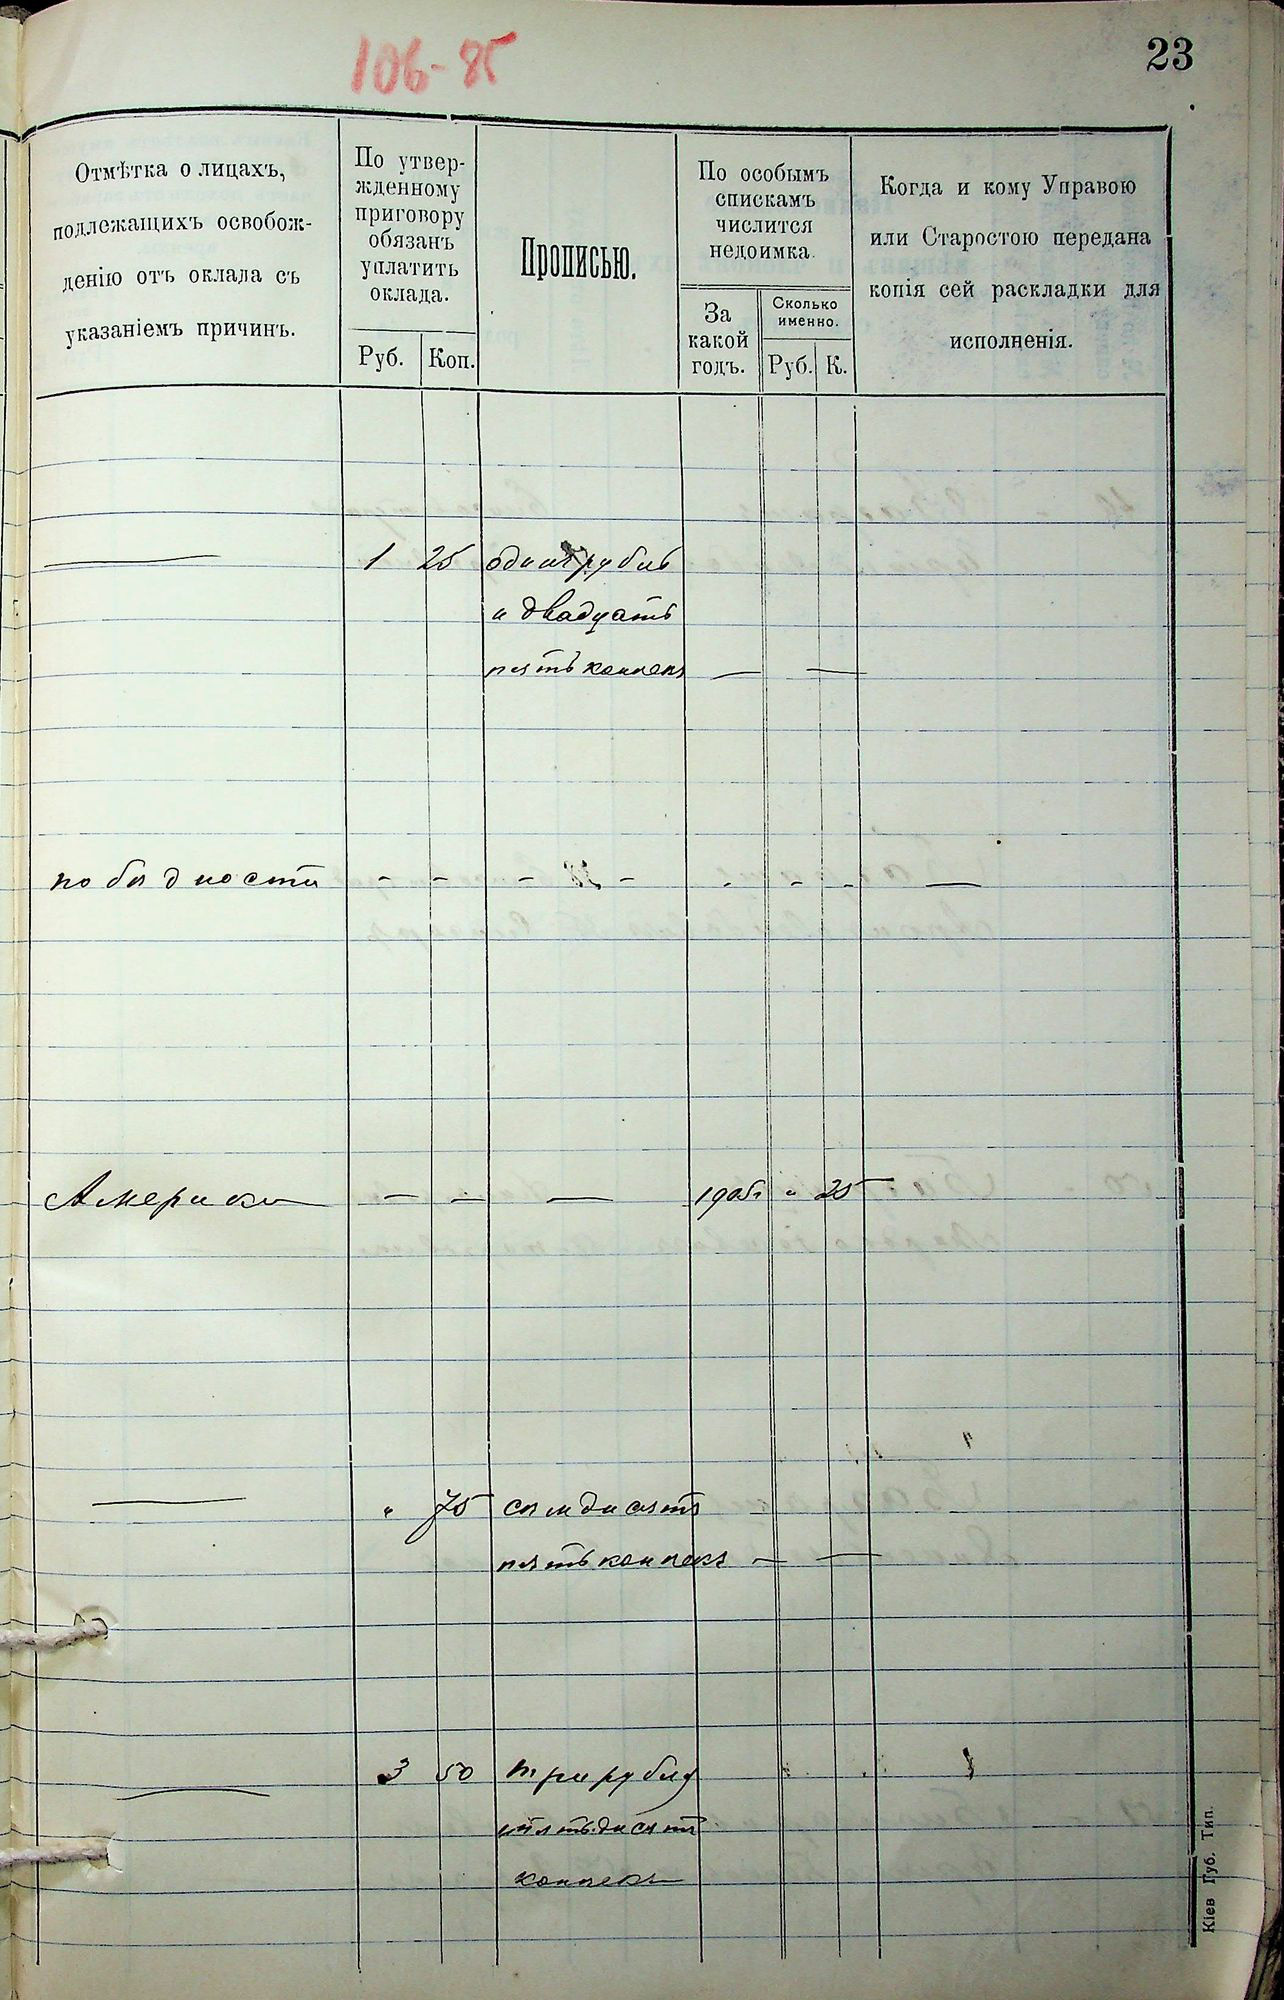 106-85
23
Отмѣтка о лицахъ,
подлежащихъ освобож-
денію отъ оклада съ
указаніемъ причинъ.
По утвер-
жденному
приговору
обязанъ
уплатить
оклада.
Руб. Коп.
Прописью.
По особымъ
спискамъ
числится
недоимка.
За
какой
годъ.
Сколько
именно.
Руб. К.
Когда и кому Управою
или Старостою передана
копія сей раскладки для
исполненія.
— 1 25 одинъ рубль
и двадцать
пять копѣекъ — —
по бѣдности - - - - - - - —
Америка — — — 1905г „ 25
— „ 75 семдисятъ
пять копѣекъ — —
— 3 50 три рубля
пятьдисятъ
копѣекъ
Кіев Губ. Тип.